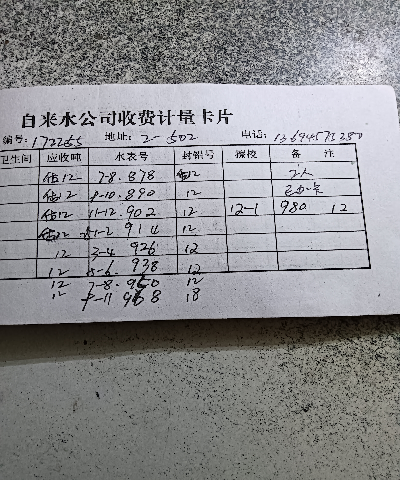 自来水公司收费计量卡片
编号: 172265 地址: 2-502 电话: 13694573280
卫生间 应收吨 水表号 封铅号 换校 备 注
估12 7-8. 878 估12 2人
估12 9-10. 890 12 已办卡
估12 11-12. 902 12 12-1 980 12
估12 1-2 914 12
12 3-4 926 12
12 5-6. 938 12
12 7-8. 950 12
12 9-11 968 18